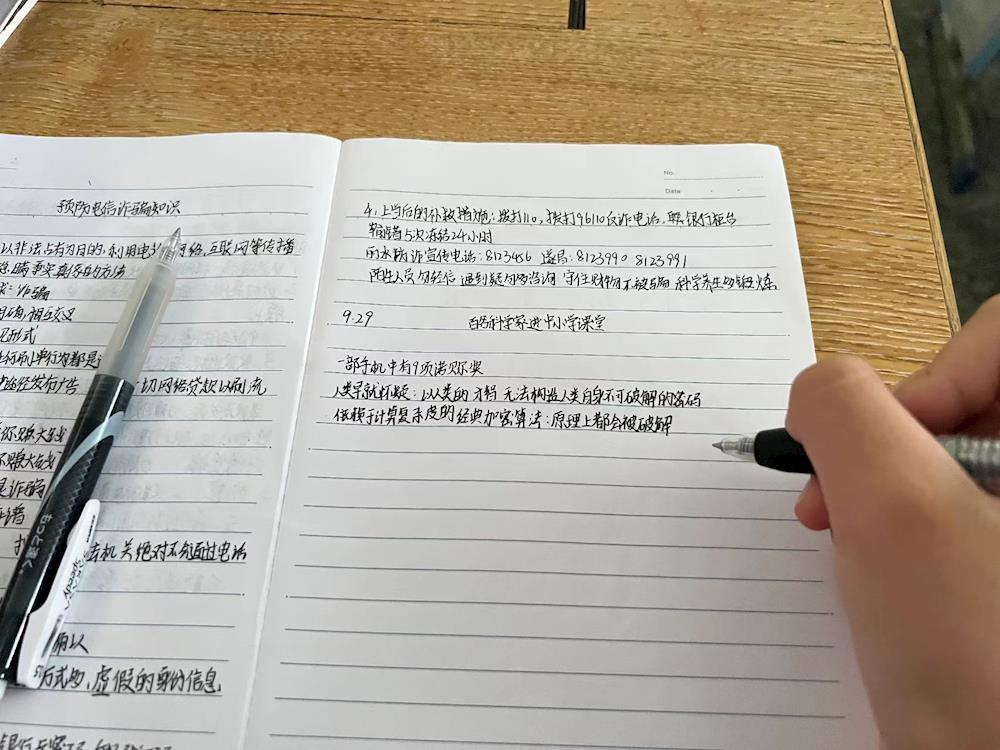 预防电信诈骗知识
以非法占有为目的,利用电 网络,互联网等传播
瞒事实真伪的方法
诈骗
相互交叉
形式
何 单行均都是
途径发布广告 切网络贷款以刷流
你赚大钱
不赚大钱
是诈骗
谱
机关绝对不会通过电话
以
方式 ,虚假的身份信息
No.
Date
4,上当后的补救措施:拨打110,拨打96110反诈电话,联 银行柜台
输错5次冻结24小时
丽水 诈宣传电话:8123456 遂昌:8123990 8123991
陌生人员勿轻信 遇到疑问多咨询 守住财物不被骗 科学养生多锻炼
9.29 百名科学家进中小学课堂
一部手机中有9项诺贝尔奖
人类早就怀疑:以人类的才智 无法构造人类自身不可破解的密码
依赖于计算复杂度的经典加密算法:原理上都会被破解
Speedy